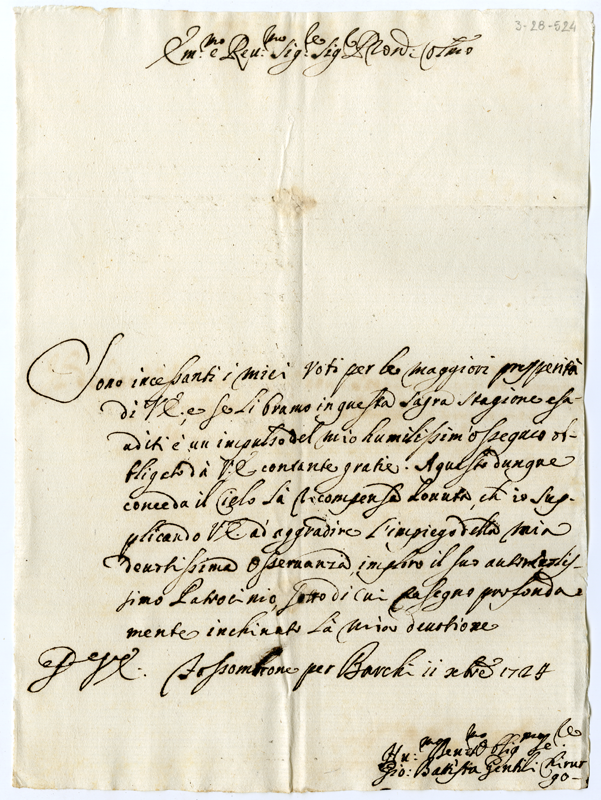 3-28-524
Em.mo e Rev.mo Sig.re Sig.re Pron. Col.mo
Sono incessanti i miei voti per le maggiori prosperità
di V.E., e se li bramo in questa sagra stagione esa-
uditi è un impulso del mio humilissimo ossequio ob-
bligato à V.E. con tante gratie. A questo dunque
conceda il Cielo la ricompensa dovuta, ch'io sup-
plicando V.E. ad aggradire l'impiego della mia
devotissima osservanza, imploro il suo autorevolis-
simo Patrocinio, sotto di cui rasegno profonda
mente inchinato la mia devotione
Di V.E. Fossombrone per Barchi 11 xbre 1724
Hu.mo Dev.mo Oblig.mo Se.re
Gio: Batista Gentili Chirur
go